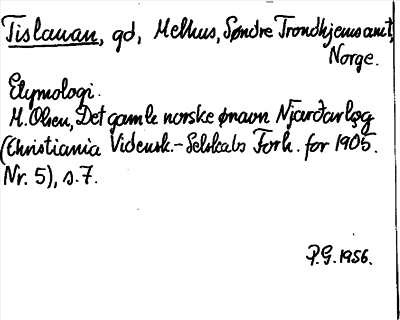 Tislauan, gd, Melhus, Søndre Trondhjems amt,
Norge.
Etymologi.
M. Olsen, Det gamle norske ønavn Njarðarløg
(Christiania Vidensk.-Selskabs Forh. for 1905.
Nr. 5), s. 7.
P.G. 1956.